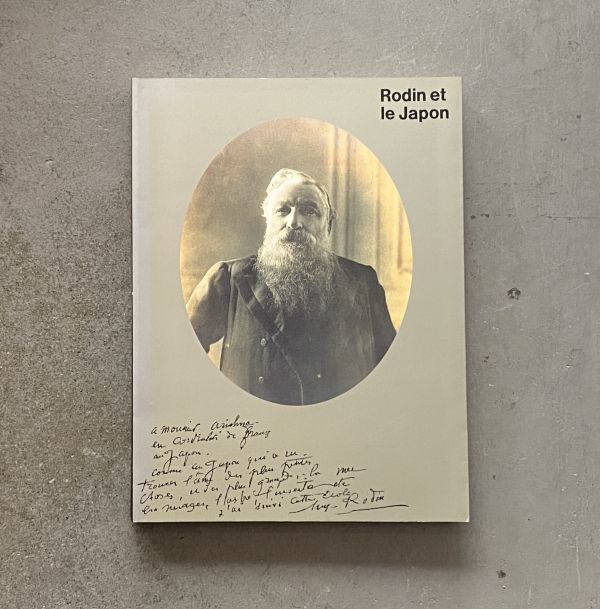 Rodin et
le Japon
a monsieur
en cordialité de
au Japon.
comme au Japon qui a su
trouver l'âme des plus petites
choses, et des plus grandes, : la mer
les nuages, l'arbre l'insecte etc
j'ai suivi cette école
Aug Rodin